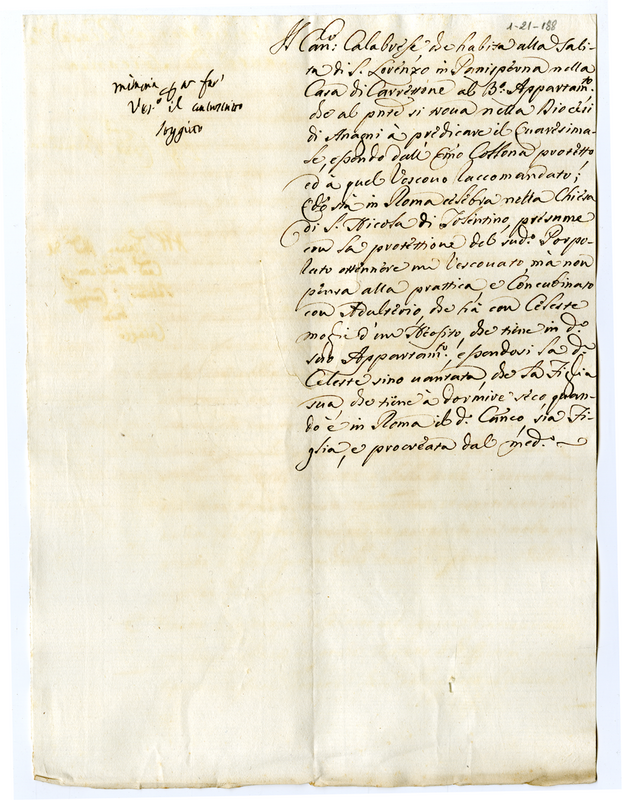 1-21-188
Il Can:co Calabrese che habita alla Sali-
ta di S. Lorenzo in Panisperna nella
Casa di Carrerone al P.o Appartam.to
che al pnte si trova nella Diocesi
di Anagni à predicare il Quaresima-
le, essendo dall' Emo Collona protetto
ed à quel Vescovo raccomandato;
stà in Roma celebra nella Chiesa
di S. Nicola di Tolentino, presume
con la protettione del sud.o Porpo-
rato ottennere un Vescovato, mà non
pensa alla prattica e Concubinato
con Adulterio, che hà con Celeste
moglie d'un che tiene in d.o
suo Appartam.to, essendosi la d.a
Celeste sino vantata, che la Figlia
sua, che tiene à dormire seco quan-
do è in Roma il d.o Can:co, sia Fi-
glia, e procreata dal med.o
memoria per far
il
soggetto